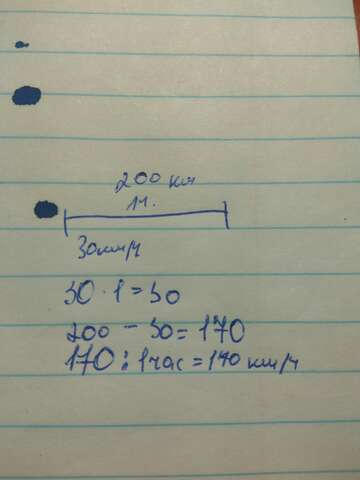 200 км
1ч.
30км/ч
30 · 1 = 30
200 - 30 = 170
170 : 1час = 170 км/ч